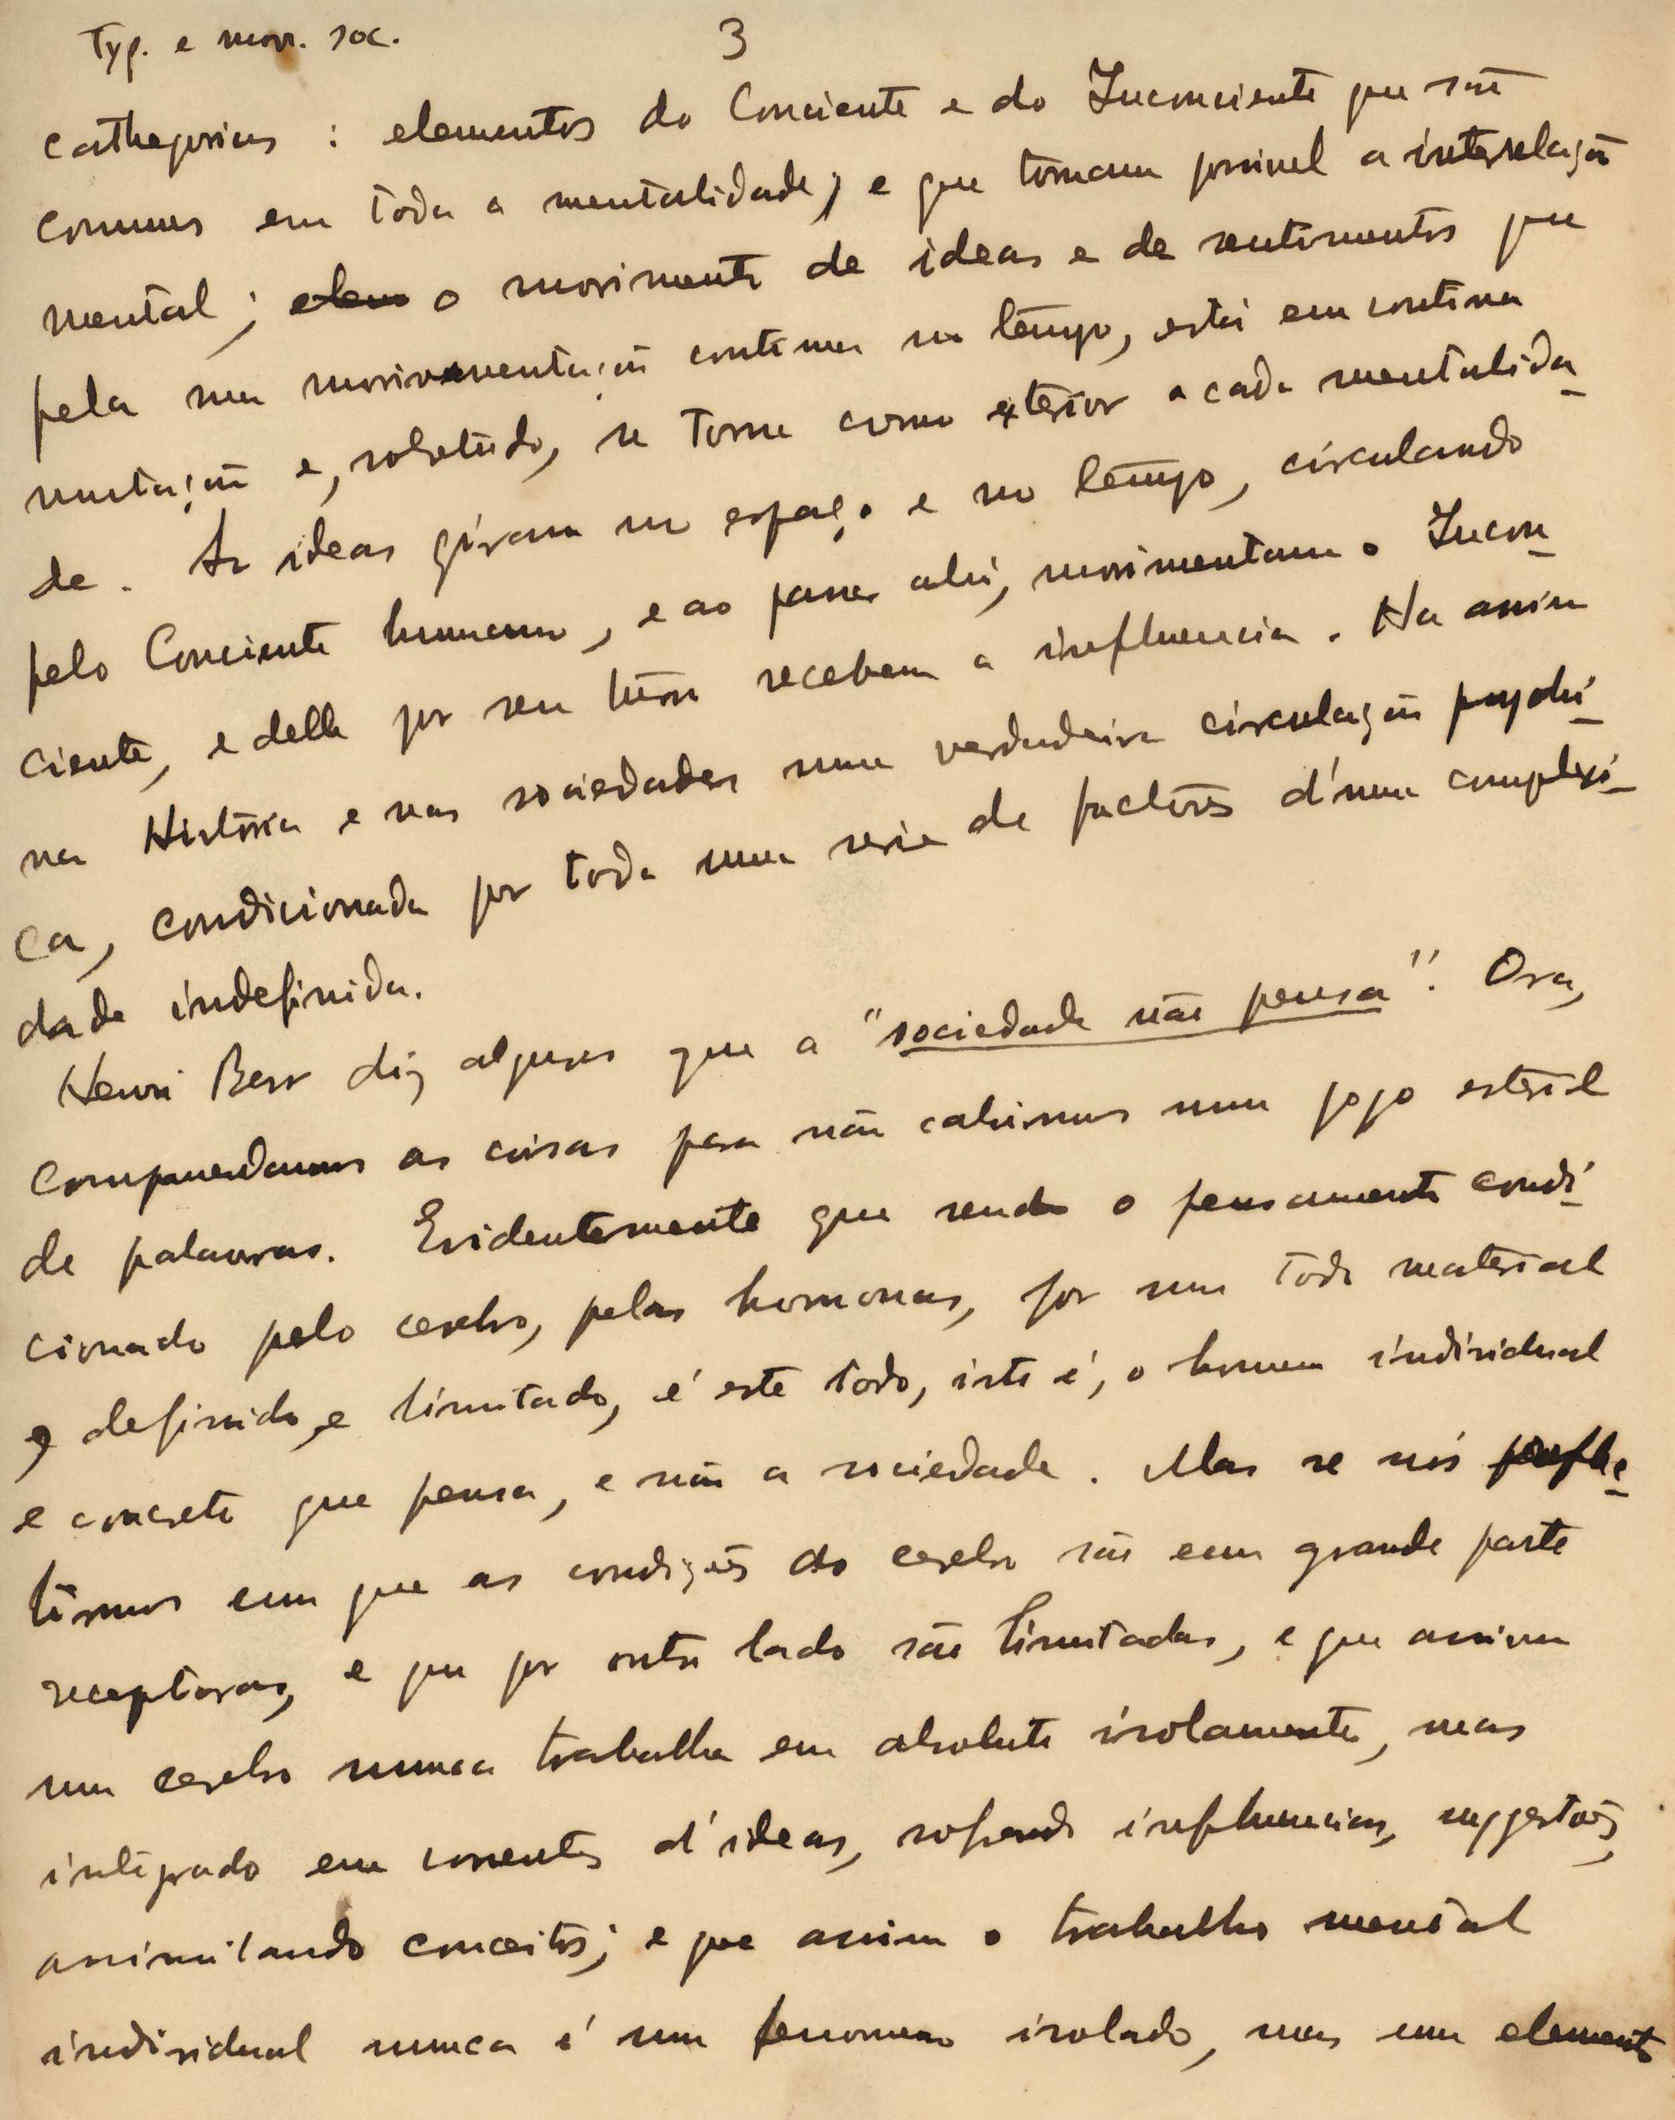 Typ. e mov. soc.
3
cathegorias : elementos do Conciente e do Inconciente que são
communs em toda a mentalidade; e que tornam possivel a interrelação
mental; elem o movimento de ideas e de sentimentos que
pela sua movimentação continua no tempo, está em continua
mutação e, sobretudo, se torna como exterior a cada mentalida-
de. As ideas giram no espaço e no tempo, circulando
pelo Conciente humano, e ao passar ahi, movimentam o Incon-
ciente, e delle por seu turno recebem a influencia. Ha assim
na Historia e nas sociedades uma verdadeira circulação psychi-
ca, condicionada por toda uma serie de factores d'uma complexi-
dade indefinida.
Henri Berr diz algures que a "sociedade não pensa". Ora,
comprehendamos as coisas para não cahirmos num jogo esteril
de palavras. Evidentemente que sendo o pensamento condi-
cionado pelo cerebro, pelas hormonas, por um todo material
e definido e limitado, é este todo, isto é, o homem individual
e concreto que pensa, e não a sociedade. Mas se nós refle-
tirmos em que as condições do cerebro são em grande parte
receptoras, e que por outro lado são limitadas, e que assim
um cerebro nunca trabalha em absoluto isolamento, mas
integrado em correntes d'ideas, sofrendo influencias, suggestões,
assimilando conceitos; e que assim o trabalho mental
individual nunca é um fenomeno isolado, mas um elemento